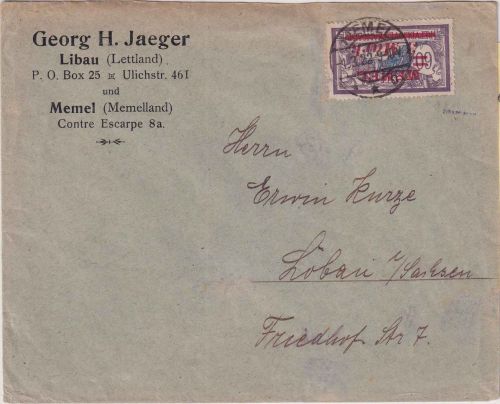 Georg H. Jaeger
Libau (Lettland)
P. O. Box 25 Ulichstr. 46I
und
Memel (Memelland)
Contre Escarpe 8a.
MEMEL
Herrn
Erwin Kurze
Löbau i/Sachsen
Friedhof Str 7.